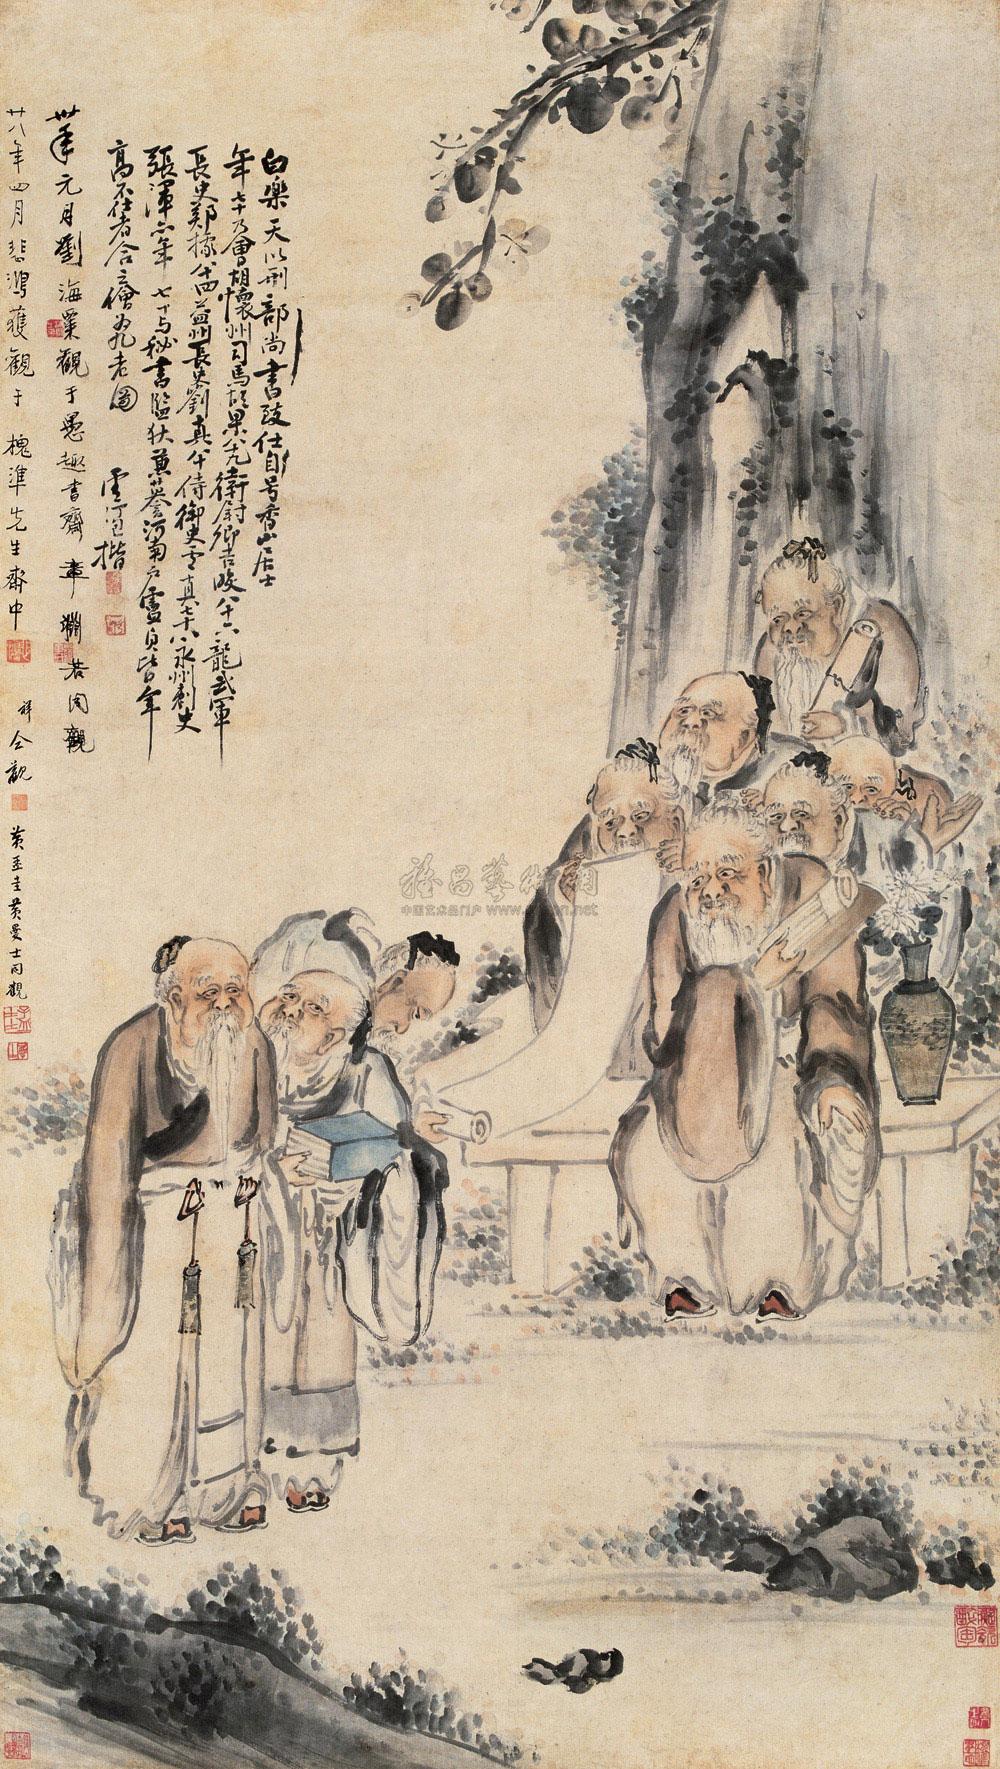 白樂天以刑部尚書致仕自号香山居士
年七十乃會胡懷州司馬胡杲八九衛尉卿吉皎八十六龍武軍
長史郑據八十四益州長史劉真八十侍御史真七十八永州刺史
張渾亦年七十与秘書監狄兼謩河南尹盧貞皆年
高不仕者合之繪為九老圖
揩
元月劉海粟觀于愚趣書齋章瀾若同觀
廿八年四月悲鴻獲觀于槐準先生齋中
祥仝觀
黃孟圭黃曼士同觀